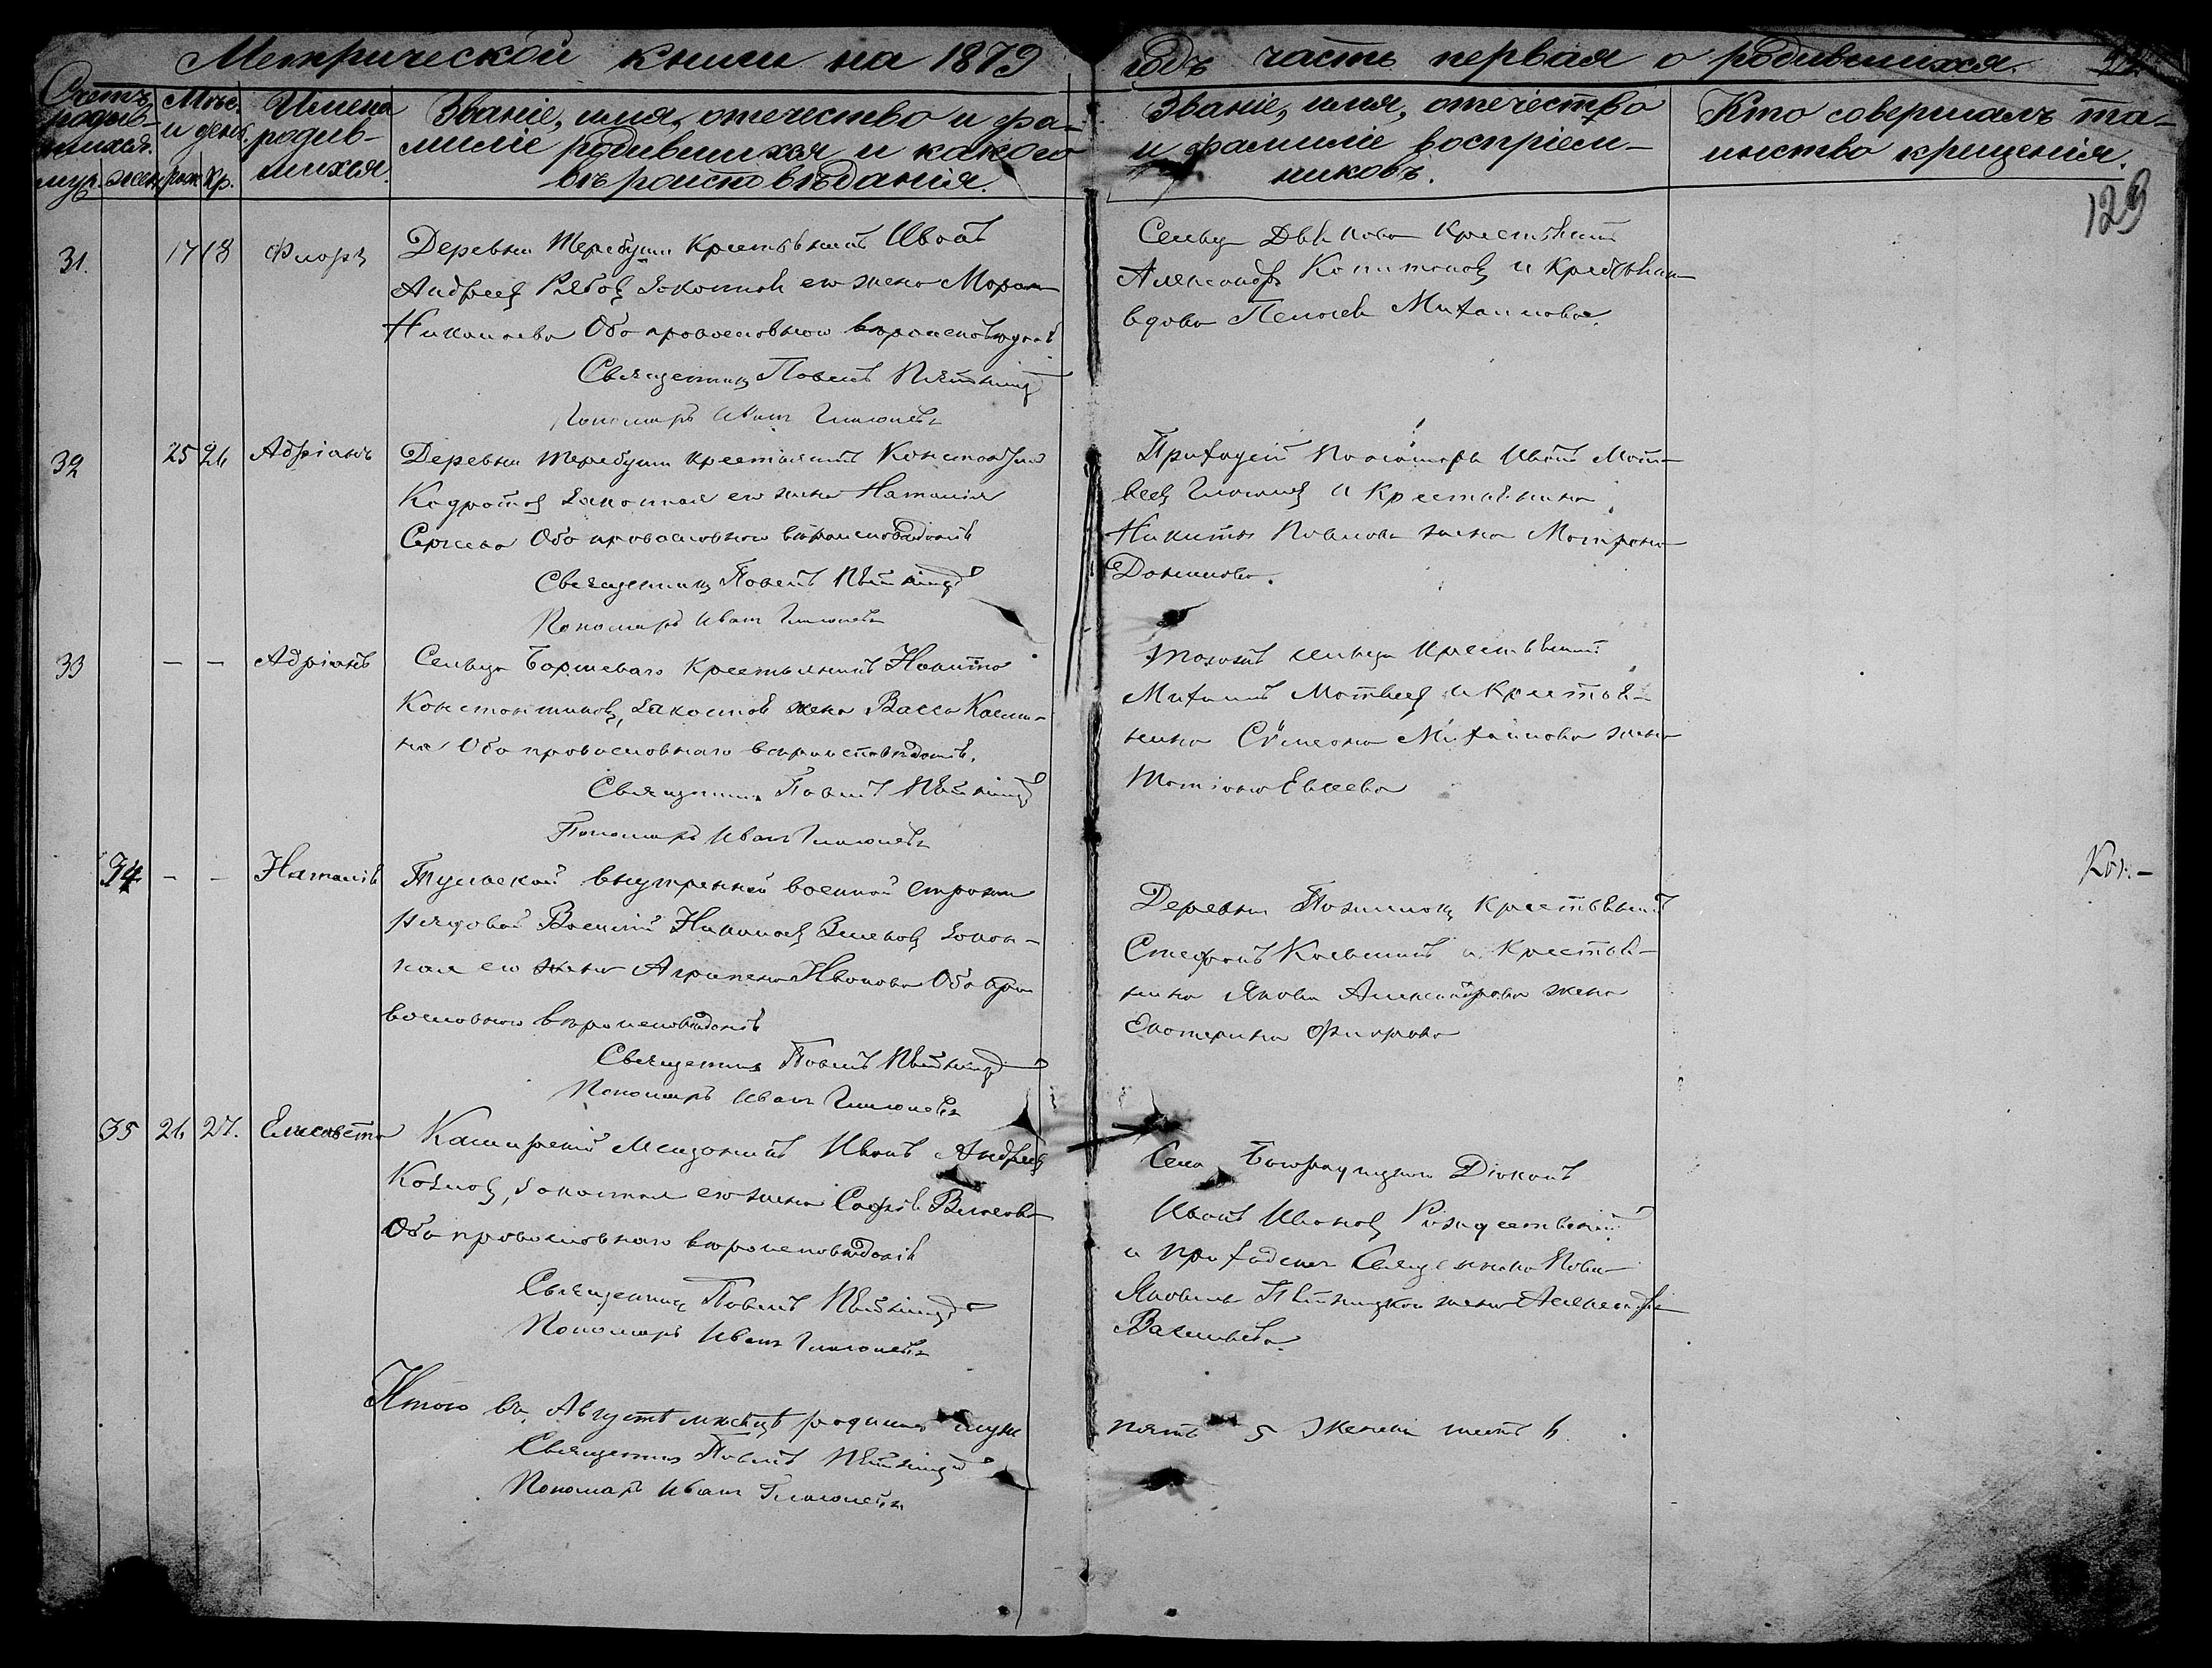 Метрической книги на 1879 годъ часть первая о родившихся.
Счетъ родив-
шихся.
муж. жен.
Мѣс.
и день.
рож. кр.
Имена
родив-
шихся.
Званіе, имя, отечество и фа-
миліе родившихся и какого
вѣроисповѣданія.
Званіе, имя, отечество
и фамиліе воспріем-
никовъ.
Кто совершалъ та-
инство крещенія.
129
31. 17 18 Флоръ
Деревни Теребуши Крестьянинъ Иванъ
Андреевъ Рябовъ Законная его жена Марѳа
Николаева Оба православнаго вѣроисповѣданія
Священникъ Павелъ Пятницкій
Пономарь Иванъ Глаголевъ
Сельца Дьякова Крестьянинъ
Александръ Капитоновъ и Крестьянка
вдова Пелагея Михайлова.
32 25 26 Адріанъ
Деревни Теребуши крестьянинъ Константинъ
Кодратовъ Законная его жена Наталія
Сергеева Оба православнаго вѣроисповѣданія
Священникъ Павелъ Пятницкій
Пономарь Иванъ Глаголевъ
Приходскій Пономарь Иванъ Мат-
веевъ Глаголевъ и Крестьянина
Никиты Павлова жена Матрона
Данилова.
33 — — Адріанъ
Сельца Боршеваго Крестьянинъ Никита
Константиновъ, Законная жена Васса Касьяно-
на Оба православнаго вѣроисповѣданія.
Священникъ Павелъ Пятницкій
Пономарь Иванъ Глаголевъ
Тогожъ сельца Крестьянинъ
Михаилъ Матвеевъ и Крестья-
нина Сѵмеона Михайлова жена
Татіана Евсеева
34 — — Наталія
Тульской внутренней военной стражи
Рядовой Василій Николаевъ Законн-
ная его жена Агрипена Иванова Оба пра
вославнаго вѣроисповѣданія
Священникъ Павелъ Пятницкій
Пономарь Иванъ Глаголевъ
Деревни Крестьянинъ
Стефанъ Касьяновъ и Крестья-
нина Якова Александрова жена
Екатерина Флорова
Коп.—
35 26 27. Елисавета
Каширскій Мещанинъ Иванъ Андреевъ
Козловъ, Законная его жена Софія
Оба православнаго вѣроисповѣданія
Священникъ Павелъ Пятницкій
Пономарь Иванъ Глаголевъ
Села Діаконъ
Иванъ Ивановъ Рождественскій
и приходскаго Священника Павла
Яковлева Пятницкаго жена Александра
Васильева.
Итого въ Августѣ мѣсяцѣ родилось муж пять 5 Женска шесть 6.
Священникъ Павелъ Пятницкій
Пономарь Иванъ Глаголевъ